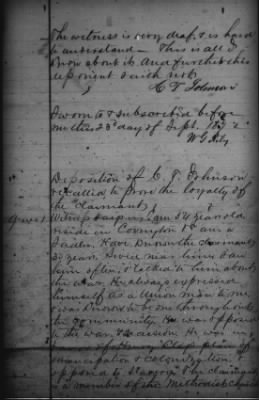 The witness is very deaf, & is hard
to understand — This is all I
know about it and further this
deponent saith not.
C. T. Johnson
Sworn to & subscribed before
me this 23d day of Sept. 187
Deposition of C. T. Johnson
recalled to prove the loyalty of
the Claimant
Witness says: am 54 years old
reside in Covington am a
known the claimant
30 years. I live near him. I saw
him often, & talked to him about
the war. He always expressed
himself as a Union man to me
was known to be one throughout
the community. He was opposed
to the war, & secession. He was in
favor of Henry Clay plan of
emancipation & colonization. &
opposed to slavery. The claimant
is a member of the Methodist Church